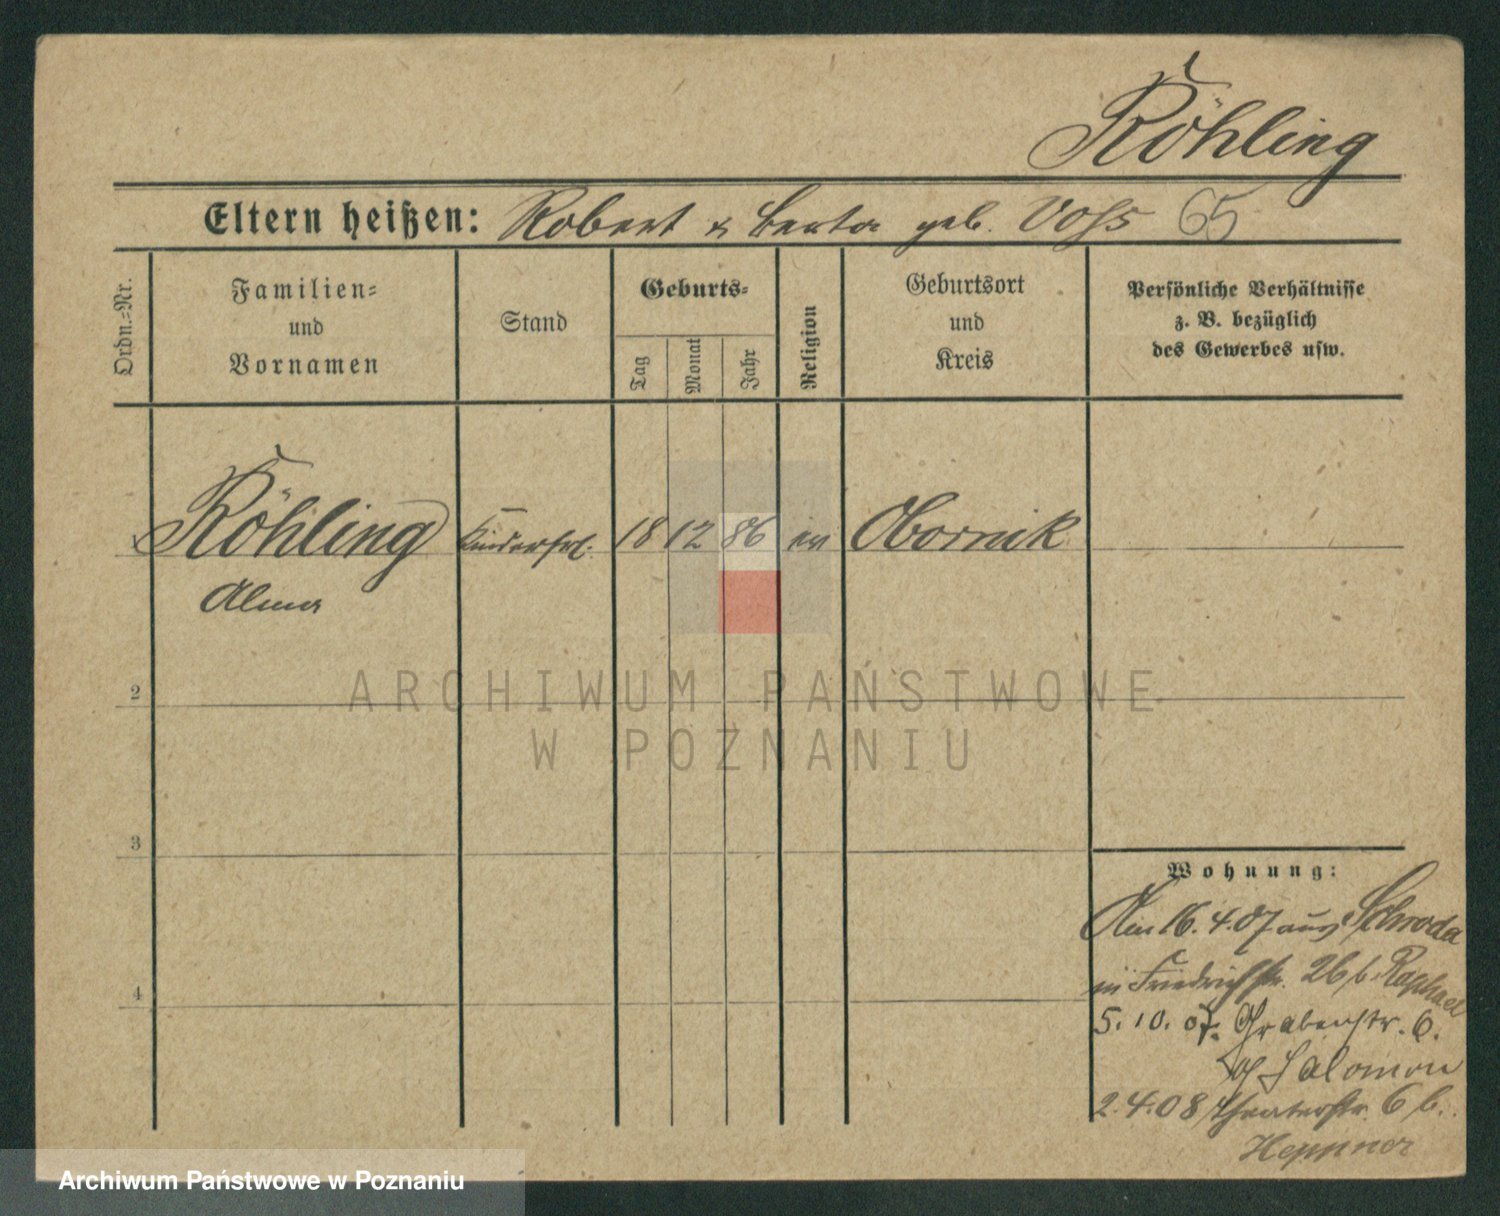 Röhling
Eltern heißen: Robert & Berta geb. Voss 65
Ordn.-Nr.
Familien-
und
Vornamen
Stand
Geburts-
Tag
Monat
Jahr
Religion
Geburtsort
und
Kreis
Persönliche Verhältnisse
z. B. bezüglich
des Gewerbes usw.
Röhling Kinderfrl. 18 12 86 ev Obornik
Alma
ARCHIWUM PAŃSTWOWE
W POZNANIU
2
3
4
Wohnung:
Am 16.4.07 aus Schroda
in Friedrichstr. 26 b. Raphael
5.10.07. Grabenstr. 6.
Salomon
2.4.08 Theaterstr. 6 b.
Heppner
Archiwum Państwowe w Poznaniu